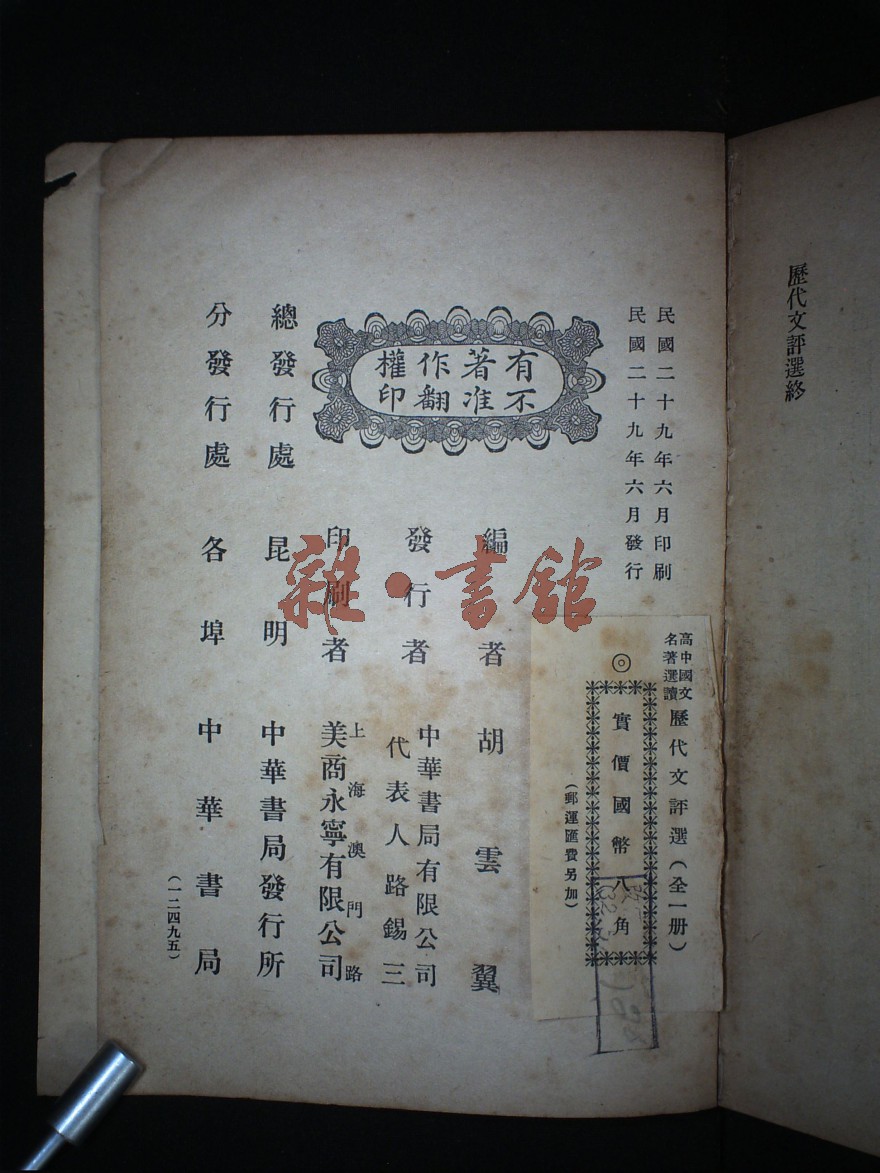 歷代文評選終
民國二十九年六月印刷
民國二十九年六月發行
高中國文
名著選讀
歷代文評選（全一册）
◎
實價國幣八角
（郵運匯費另加）
有著作權
不准翻印
編者 胡雲翼
發行者 中華書局有限公司
代表人路錫三
印刷者 上海澳門路
美商永寧有限公司
總發行處 昆明 中華書局發行所
分發行處 各埠 中華書局
（一二四九五）
雜·書館